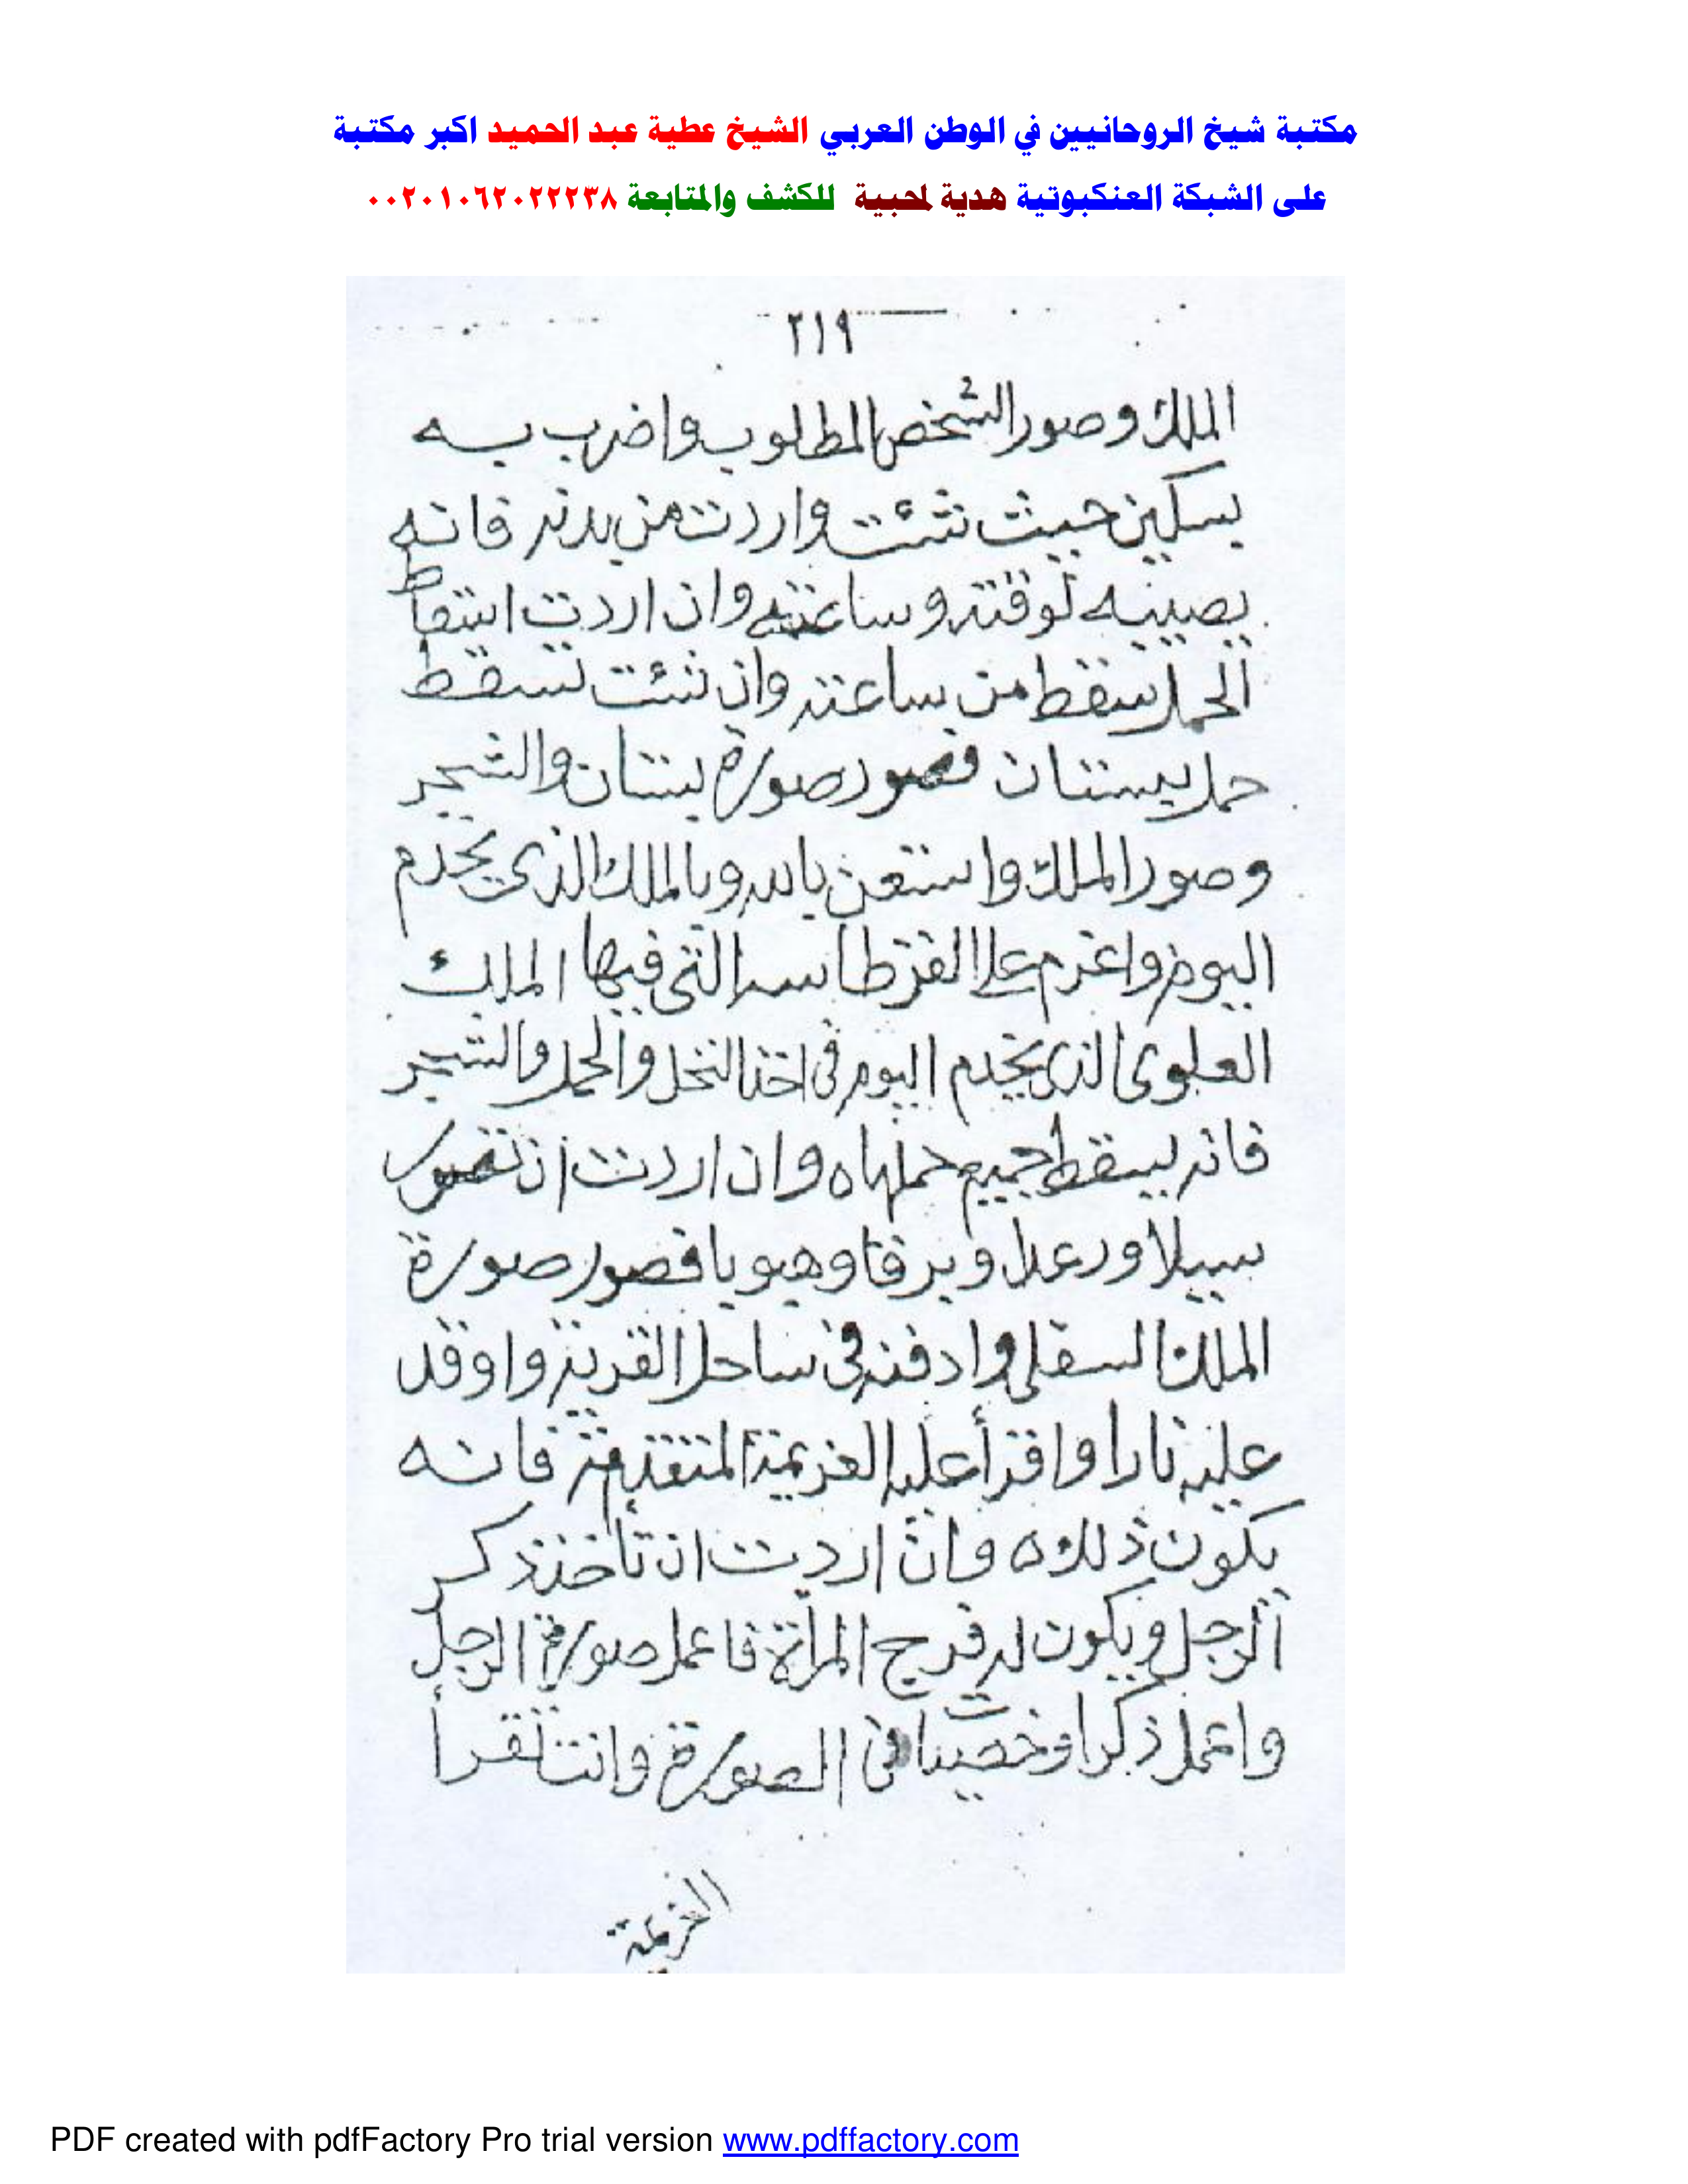 مكتبة شيخ الروحانيين في الوطن العربي الشيخ عطية عبد الحميد اكبر مكتبة
على الشبكة العنكبوتية هدية لمحبية للكشف والمتابعة ٠٠٢٠١٠٦٢٠٢٢٢٣٨
٢١٩
الملك وصور الشخص المطلوب واضرب به
بسكين حيث شئت واردت من بدنه فانه
يصيبه لوقته وساعته وان اردت اسقاط
الحمل سقط من ساعته وان شئت تسقط
حمل بستان فصور صورة بستان والشجر
وصور الملك واستعن بالله وبالملك الذى يخدم
اليوم واعزم على القرطاسه التى فيها الملك
العلوى الذى يخدم اليوم فى اخذ النخل والحمل والشجر
فانه يسقط جميع حملها ه وان اردت ان تصور
سيلا ورعدا وبرقا وهبوبا فصور صورة
الملك السفلى وادفنه فى ساحل القرية واوقد
عليه نارا واقرأ عليه العزيمة المتقدمة فانه
يكون ذلك ه وان اردت ان تأخذ ذكر
الرجل ويكون له فرج المرأة فاعمل صورة الرجل
واعمل ذكرا وخصيتا فى الصورة وانت تقرأ
العزيمة
PDF created with pdfFactory Pro trial version www.pdffactory.com